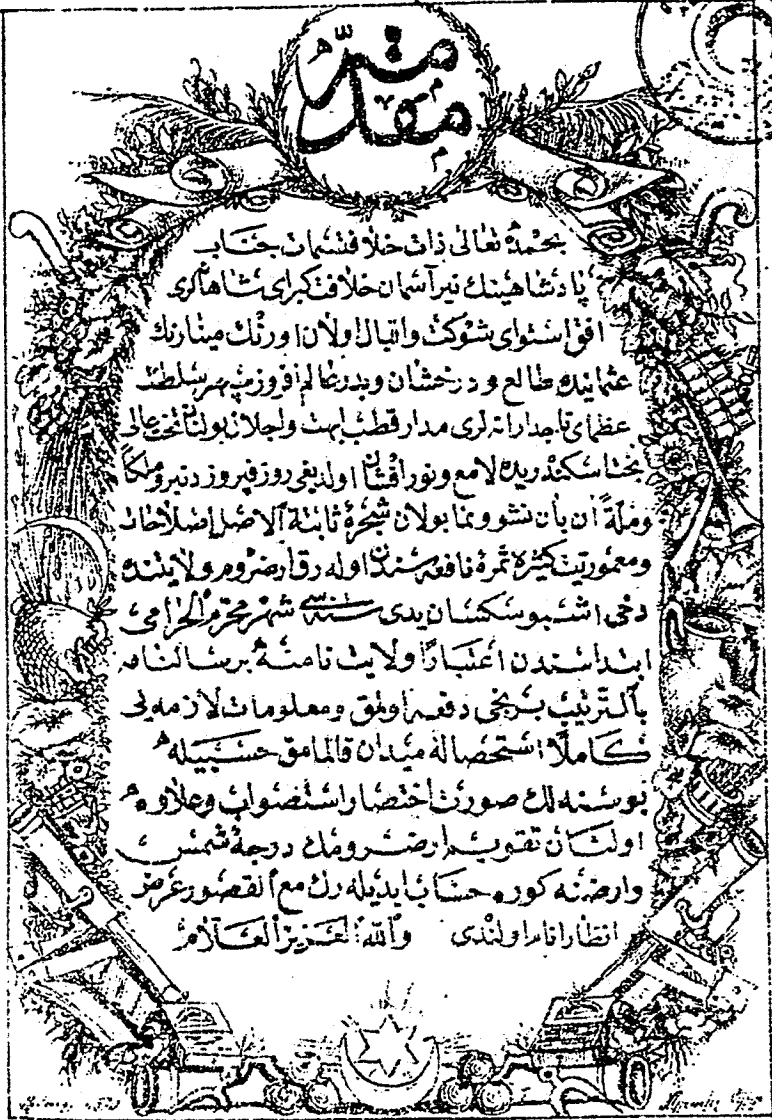 مقدمه
بحمده تعالی ذات خلافتسمات جناب
پادشاهینك نیر آسمان خلافت کبرای شاهانه‌لری
افق استوای شوکت واقبال اولان اورنك مینارنك
عثمانیده طالع و درخشان وبدر عالم افروز سپهر سلطنت
عظمای تاجدارانه لری مدار قطب ابهت واجلال بولنان تخت عالی
بخت اسکندریده لامع ونور افشان اولدیغی روز فیروز دنبرو ملکاً
وملةً آن بآن نشوونما بولان شجرۀ ثابتة الاصل اصلاحات
ومعموریتك کثیره ثمرۀ نافعه سندن اوله رق ارضروم ولایتنده
دخی اشبو سکسان یدی سنه سی شهر محرم الحرامی
ابتداسندن اعتباراً ولایت نامنه برسالنامه
بالترتیب برنجی دفعه اولمق ومعلومات لازمه یی
کاملاً استحصاله میدان قالمامق حسبیله
بوسنه لك صورت اختصار استصواب وعلاوه
اولنان تقویم ارضرومك درجۀ شمس
وارضنه کوره حساب ایدیله رك مع القصور عرض
انظار انام اولندی والله العزیز العلام